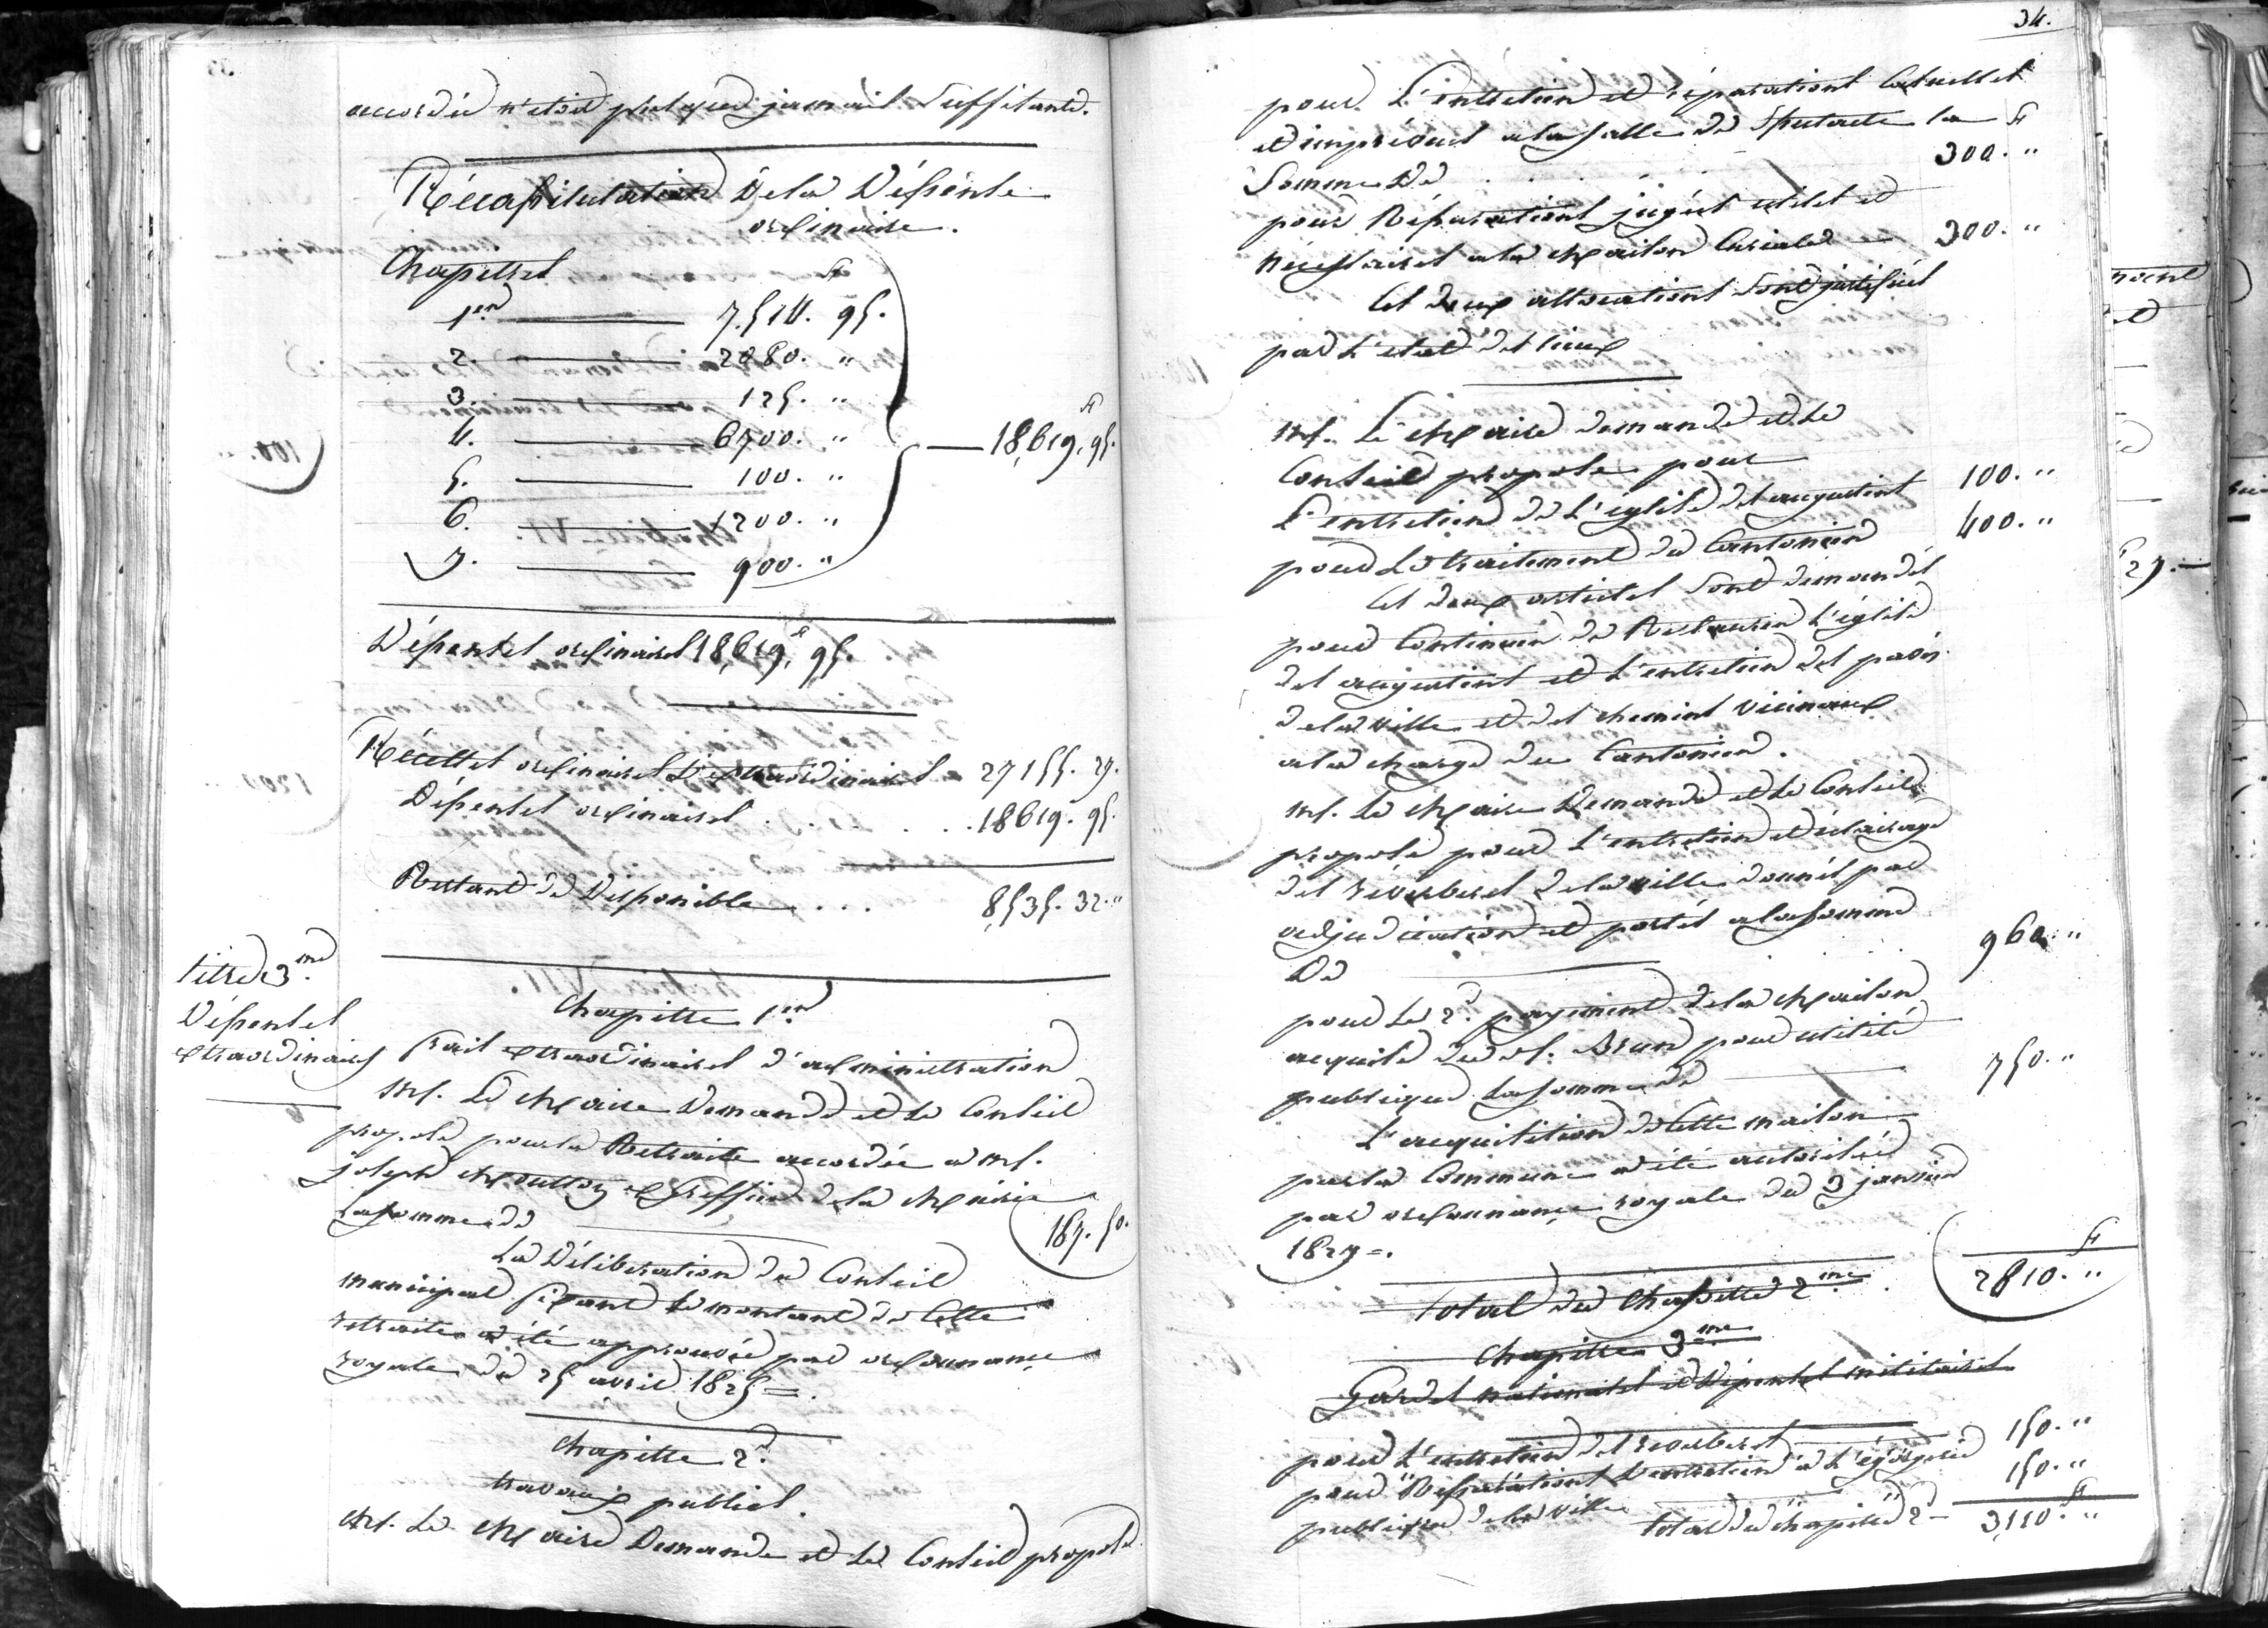 accordée n'etoit presque jamais Suffisante.
Récapitulation De la Dépense
ordinaire.
Chapitres ff
1er 7.514. 95.
2. 2080. "
3. 125. "
4. 6700. "
5. 100. "
6. 1200. "
7. 900. "
ff
18,619, 95.
Dépenses ordinaires 18,619,ff 95.
Récettes ordinaires & extraordinaires 27155. 27.
Dépenses ordinaires . . . . . 18619. 95.
Restant de Disponible . . . 8,535. 32. "
titre 3me
Dépenses
extraordinaires
Chapitre 1er
frais extraordinaires d'administration
Mr. Le Maire Demande et le Conseil
propose pour la Retraite accordée a Mr.
joseph exgreffier de la Mairie
la somme de 187. 50.
La Délibération du Conseil
municipal fixant le montant de Cette
retraite a été approuvée par ordonnance
royale du 25 avril 1825 =.
Chapitre 2d.
travaux publics.
Mr. Le Maire Demande et Le Conseil propose
34.
pour L'entretien et réparations Cas
et imprévues a la salle de Spectacle la ff
Somme De 300. "
pour Réparations jugées utiles et
nécessaires a la Maison Curiale 300. "
Ces deux allocations sont justifiées
par L'etat des lieux
Mr. Le Maire demande et Le
Conseil propose pour
L'entretien de L'église des augustins 100. "
pour Le traitement du Cantonier 400. "
Ces deux articles sont demandés
pour Continuer de Restaurer L'église
des augustins et L'entretien des pavés
de la ville et des chemins vicinaux
a la charge du Cantonier.
Mr. Le Maire Demande et Le Conseil
propose pour L'entretien et éclairage
des réverberes de la ville donnés par
adjudication et portés a la somme
De 960. "
pour Le 2d. payement de la Maison
acquise du Sr. Brun pour utilité
publique La somme de 750. "
L'acquisition de Cette maison
par la Commune a été autorisée
par ordonnance royale du 3 janvier
1827 =.
ff
total du Chapitre 2me 2810. "
Chapitre 3me
Gardes nationales et Dépenses militaires
pour L'entretien des reverberes 150. "
pour Réparations & entretien a L'égorgerie 150. "
publique de la ville
ff
total du chapitre 2d 3,110. "